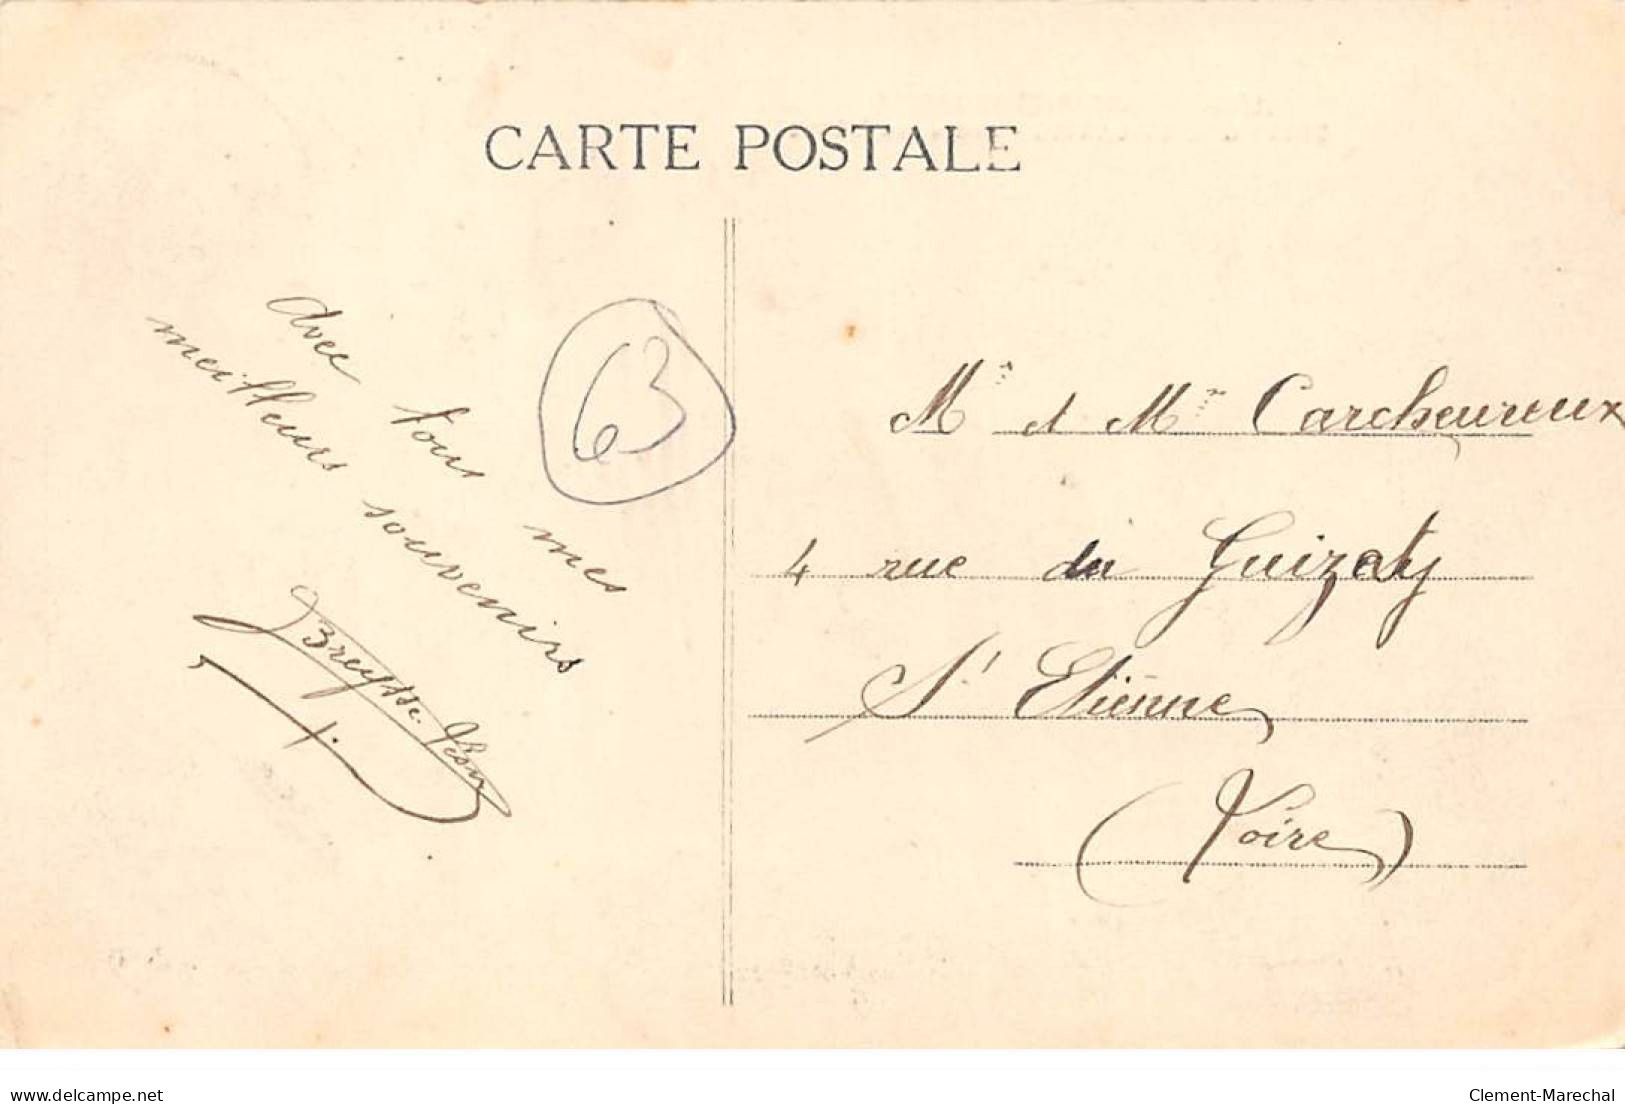 CARTE POSTALE
avec tous mes
meilleurs souvenirs
Breysse
63
Mr et Mr Carcheureux
4 rue du Guizay
St Etienne
(Loire)
delcampe.net
Clement-Marechal